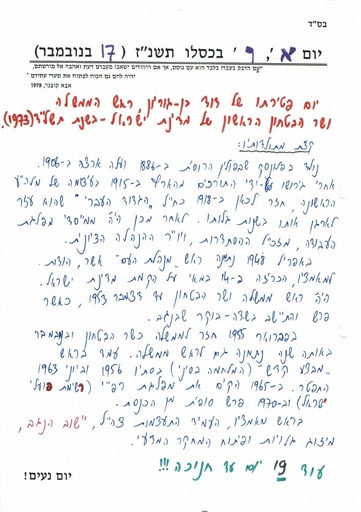 בס"ד
יום א', ו' בכסלו תשנ"ז (17 בנובמבר)
"עם הדבק בעברו בלבד הוא עם גוסס, אך אם היהודים ישאבו מעברם דעת ואהבה אל מורשתם,
יהיה להם גם הכוח לפתוח את שערי עתידם"
אבא קובנר, 1978
יום פטירתו של דוד בן-גוריון, ראש הממשלה
ושר הבטחון הראשון של מדינת ישראל - בשנת תשל"ד (1973).
קצת מתולדותיו:
נולד בפלונסק שבפולין הרוסית ב-1886 ועלה ארצה ב-1906.
אחרי גירושו על-ידי התורכים מהארץ ב-1915 בעיצומה של מלה"ע
הראשונה, חזר לכאן ב-1918 כחייל "הגדוד העברי" שהוא עזר
לארגן אותו בשנות גלותו. לאחר מכן היה ממייסדי מפלגת
העבודה, מזכ"ל ההסתדרות, ויו"ר ההנהלה הציונית.
באפריל 1948 נתמנה ראש מנהלת העם אשר, הודות
למאמציו, הכריזה ב-14 במאי על הקמת מדינת ישראל.
היה ראש ממשלה ושר הבטחון עד דצמבר 1953, כאשר
פרש והתיישב בשדה-בוקר שבנגב.
בפברואר 1955 חזר לממשלה כשר הבטחון ובנובמבר
באותה שנה נתמנה גם לראש ממשלה. עמד בראש
מבצע קדש (המלחמה בסיני) בסתיו 1956 וביוני 1963
התפטר. ב-1965 הקים את מפלגת רפ"י (רשימת פועלי
ישראל) וב-1970 פרש סופית מן הכנסת.
בראש מאמציו, העמיד התעצמות צה"ל, יישוב הנגב,
מיזוג גלויות ופיתוח המחקר המדעי.
עוד 19 יום עד חנוכה !!!
יום נעים!